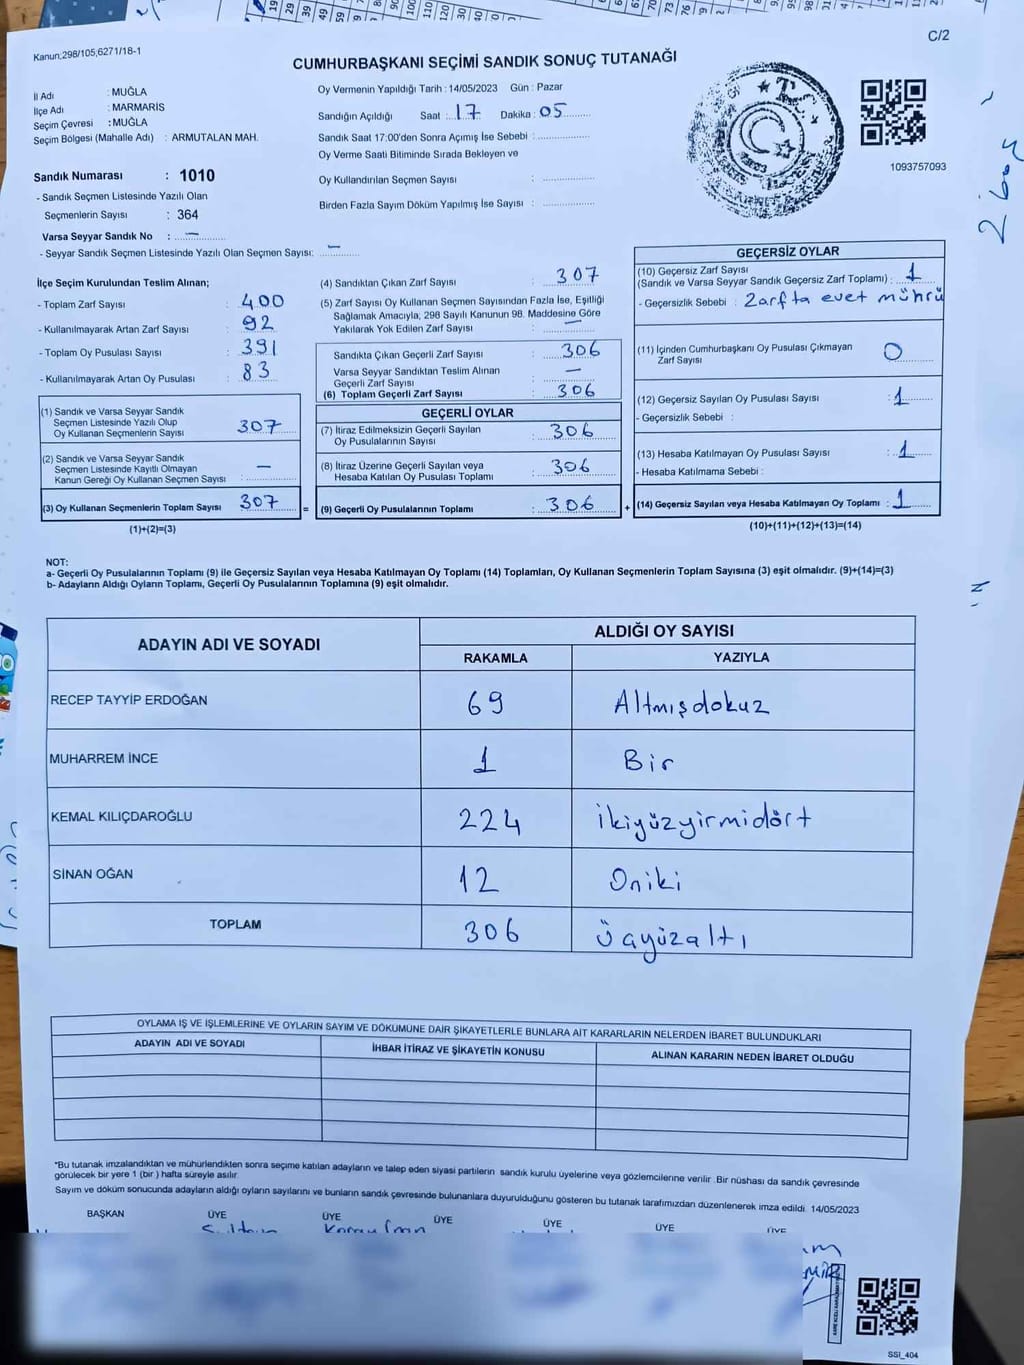 C/2
Kanun;298/105;6271/18-1
CUMHURBAŞKANI SEÇİMİ SANDIK SONUÇ TUTANAĞI
İl Adı : MUĞLA
İlçe Adı : MARMARİS
Seçim Çevresi : MUĞLA
Seçim Bölgesi (Mahalle Adı) : ARMUTALAN MAH.
Sandık Numarası : 1010
- Sandık Seçmen Listesinde Yazılı Olan
Seçmenlerin Sayısı : 364
Varsa Seyyar Sandık No : —
- Seyyar Sandık Seçmen Listesinde Yazılı Olan Seçmen Sayısı: —
Oy Vermenin Yapıldığı Tarih : 14/05/2023 Gün : Pazar
Sandığın Açıldığı Saat : 17 Dakika : 05
Sandık Saat 17:00'den Sonra Açımış İse Sebebi :
Oy Verme Saati Bitiminde Sırada Bekleyen ve
Oy Kullandırılan Seçmen Sayısı :
Birden Fazla Sayım Döküm Yapılmış İse Sayısı :
1093757093
2 boş
İlçe Seçim Kurulundan Teslim Alınan;
- Toplam Zarf Sayısı : 400
- Kullanılmayarak Artan Zarf Sayısı : 92
- Toplam Oy Pusulası Sayısı : 391
- Kullanılmayarak Artan Oy Pusulası : 83
(1) Sandık ve Varsa Seyyar Sandık
Seçmen Listesinde Yazılı Olup
Oy Kullanan Seçmenlerin Sayısı : 307
(2) Sandık ve Varsa Seyyar Sandık
Seçmen Listesinde Kayıtlı Olmayan
Kanun Gereği Oy Kullanan Seçmen Sayısı : —
(3) Oy Kullanan Seçmenlerin Toplam Sayısı : 307
(1)+(2)=(3)
=
(4) Sandıktan Çıkan Zarf Sayısı : 307
(5) Zarf Sayısı Oy Kullanan Seçmen Sayısından Fazla İse, Eşitliği
Sağlamak Amacıyla; 298 Sayılı Kanunun 98. Maddesine Göre
Yakılarak Yok Edilen Zarf Sayısı : —
Sandıkta Çıkan Geçerli Zarf Sayısı : 306
Varsa Seyyar Sandıktan Teslim Alınan
Geçerli Zarf Sayısı : —
(6) Toplam Geçerli Zarf Sayısı : 306
GEÇERLİ OYLAR
(7) İtiraz Edilmeksizin Geçerli Sayılan
Oy Pusulalarının Sayısı : 306
(8) İtiraz Üzerine Geçerli Sayılan veya
Hesaba Katılan Oy Pusulası Toplamı : 306
(9) Geçerli Oy Pusulalarının Toplamı : 306
+
GEÇERSİZ OYLAR
(10) Geçersiz Zarf Sayısı
(Sandık ve Varsa Seyyar Sandık Geçersiz Zarf Toplamı) : 1
- Geçersizlik Sebebi : Zarfta evet mührü
(11) İçinden Cumhurbaşkanı Oy Pusulası Çıkmayan
Zarf Sayısı 0
(12) Geçersiz Sayılan Oy Pusulası Sayısı : 1
- Geçersizlik Sebebi :
(13) Hesaba Katılmayan Oy Pusulası Sayısı : 1
- Hesaba Katılmama Sebebi :
(14) Geçersiz Sayılan veya Hesaba Katılmayan Oy Toplamı : 1
(10)+(11)+(12)+(13)=(14)
NOT:
a- Geçerli Oy Pusulalarının Toplamı (9) ile Geçersiz Sayılan veya Hesaba Katılmayan Oy Toplamı (14) Toplamları, Oy Kullanan Seçmenlerin Toplam Sayısına (3) eşit olmalıdır. (9)+(14)=(3)
b- Adayların Aldığı Oyların Toplamı, Geçerli Oy Pusulalarının Toplamına (9) eşit olmalıdır.
ADAYIN ADI VE SOYADI ALDIĞI OY SAYISI
RAKAMLA YAZIYLA
RECEP TAYYİP ERDOĞAN 69 Altmışdokuz
MUHARREM İNCE 1 Bir
KEMAL KILIÇDAROĞLU 224 ikiyüzyirmidört
SİNAN OĞAN 12 Oniki
TOPLAM 306 Üçyüzaltı
OYLAMA İŞ VE İŞLEMLERİNE VE OYLARIN SAYIM VE DÖKÜMÜNE DAİR ŞİKAYETLERLE BUNLARA AİT KARARLARIN NELERDEN İBARET BULUNDUKLARI
ADAYIN ADI VE SOYADI İHBAR İTİRAZ VE ŞİKAYETİN KONUSU ALINAN KARARIN NEDEN İBARET OLDUĞU
*Bu tutanak imzalandıktan ve mühürlendikten sonra seçime katılan adayların ve talep eden siyasi partilerin sandık kurulu üyelerine veya gözlemcilerine verilir. Bir nüshası da sandık çevresinde
görülecek bir yere 1 (bir ) hafta süreyle asılır.
Sayım ve döküm sonucunda adayların aldığı oyların sayılarını ve bunların sandık çevresinde bulunanlara duyurulduğunu gösteren bu tutanak tarafımızdan düzenlenerek imza edildi. 14/05/2023
BAŞKAN ÜYE ÜYE ÜYE ÜYE ÜYE ÜYE
SSI_404